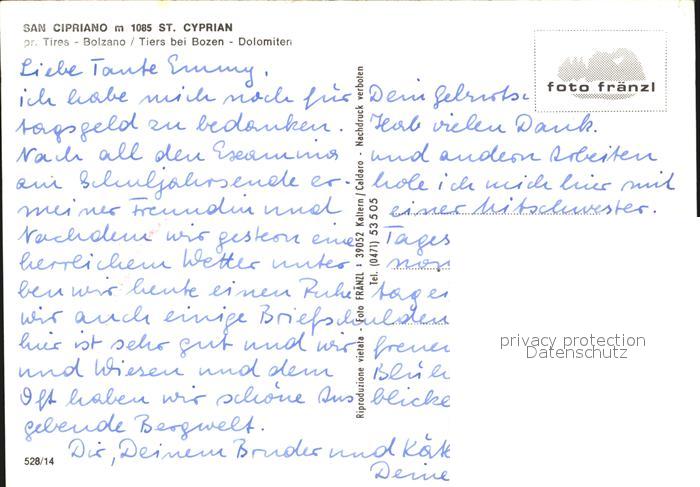 SAN CIPRIANO m 1085 ST. CYPRIAN
pr. Tires - Bolzano / Tiers bei Bozen - Dolomiten
foto fränzl
Liebe Tante Emmy,
ich habe mich noch für Dein Geburts-
tagsgeld zu bedanken. Hab vielen Dank.
Nach all den Examina und andern Arbeiten
am Schuljahrsende er- hole ich mich hier mit
meiner Freundin und einer Mitschwester.
Nachdem wir gestern eine Tages
herrlichem Wetter unter- nom
ben wir heute einen Ruhe- tag ei
wir auch einige Briefschulden
hier ist sehr gut und wir freuen
und Wiesen und dem Blüh
Oft haben wir schöne Aus- blicke
gebende Bergwelt.
Dir, Deinem Bruder und Kät
Deine
528/14
Riproduzione vietata - Foto FRÄNZL - 39052 Kaltern / Caldaro - Nachdruck verboten
Tel. (0471) 53505
privacy protection
Datenschutz